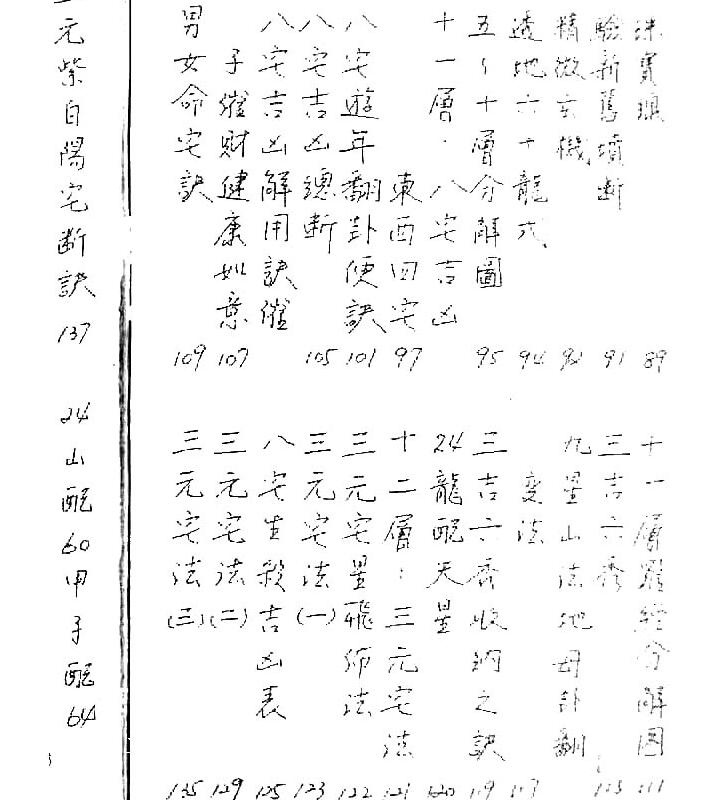 珠寶瑯 89
驗新舊墳斷 91
精微玄機 92
透地六十龍式 94
五～十層分解圖 95
十一層．八宅吉凶
東西四宅 97
八宅遊年翻卦便訣 101
八宅吉凶總斷 105
八宅吉凶解用訣催
子催財健康如意 107
男女命宅訣 109
十一層羅經分解圖 111
三吉六秀 113
九星山法地母卦翻
變法 117
三吉六秀收納之訣 119
24龍配天星 120
十二層：三元宅法 121
三元宅星飛佈法 122
三元宅法(一) 123
八宅生殺吉凶表 125
三元宅法(二) 129
三元宅法(三) 135
元紫白陽宅斷訣 137
24山配60甲子配64